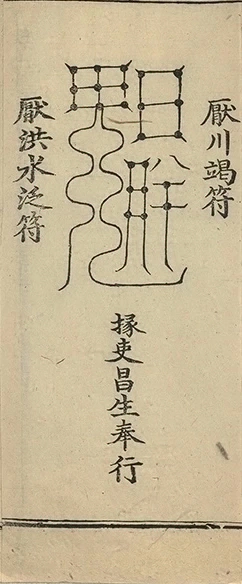 厭川竭符
厭洪水泛符
掾吏昌生奉行